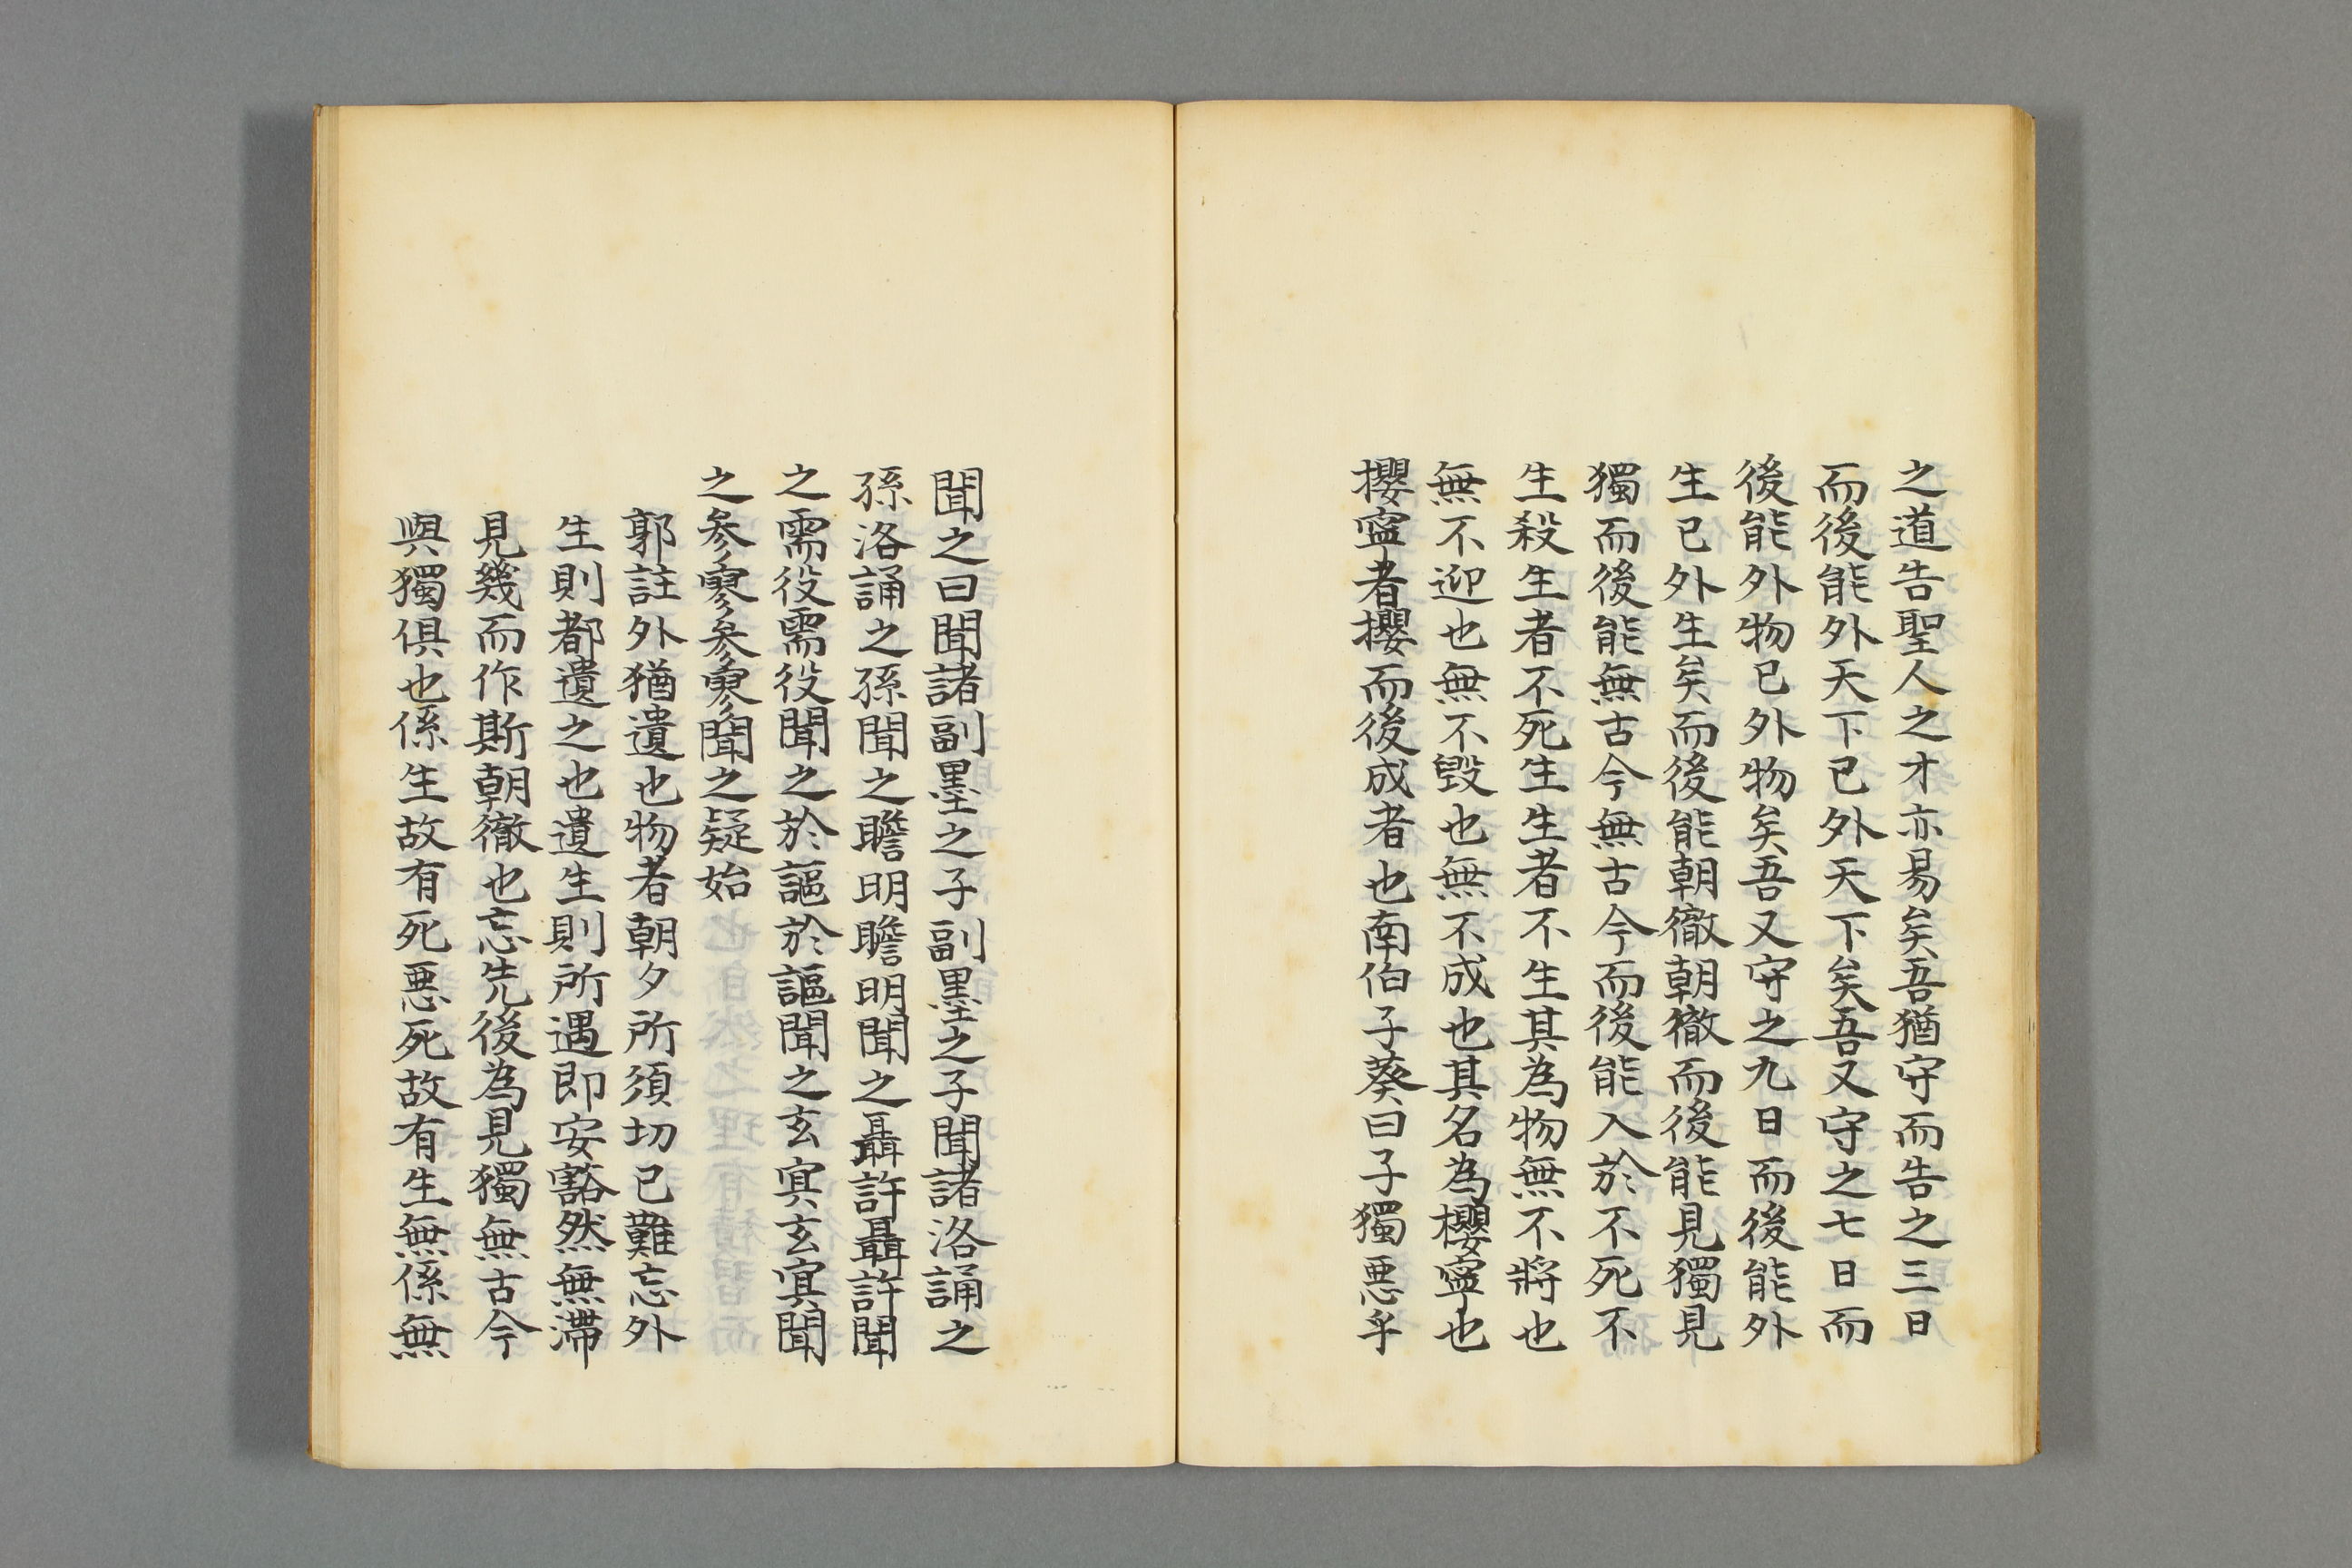 之道告聖人之才亦易矣吾猶守而告之三日
而後能外天下已外天下矣吾又守之七日而
後能外物已外物矣吾又守之九日而後能外
生已外生矣而後能朝徹朝徹而後能見獨見
獨而後能無古今無古今而後能入於不死不
生殺生者不死生生者不生其為物無不將也
無不迎也無不毀也無不成也其名為攖寧也
攖寧者攖而後成者也南伯子葵曰子獨惡乎
聞之曰聞諸副墨之子副墨之子聞諸洛誦之
孫洛誦之孫聞之瞻明瞻明聞之聶許聶許聞
之需役需役聞之於謳於謳聞之玄冥玄冥聞
之參寥參寥聞之疑始
郭註外猶遺也物者朝夕所須切己難忘外
生則都遺之也遺生則所遇即安豁然無滯
見幾而作斯朝徹也忘先後為見獨無古今
與獨俱也係生故有死惡死故有生無係無